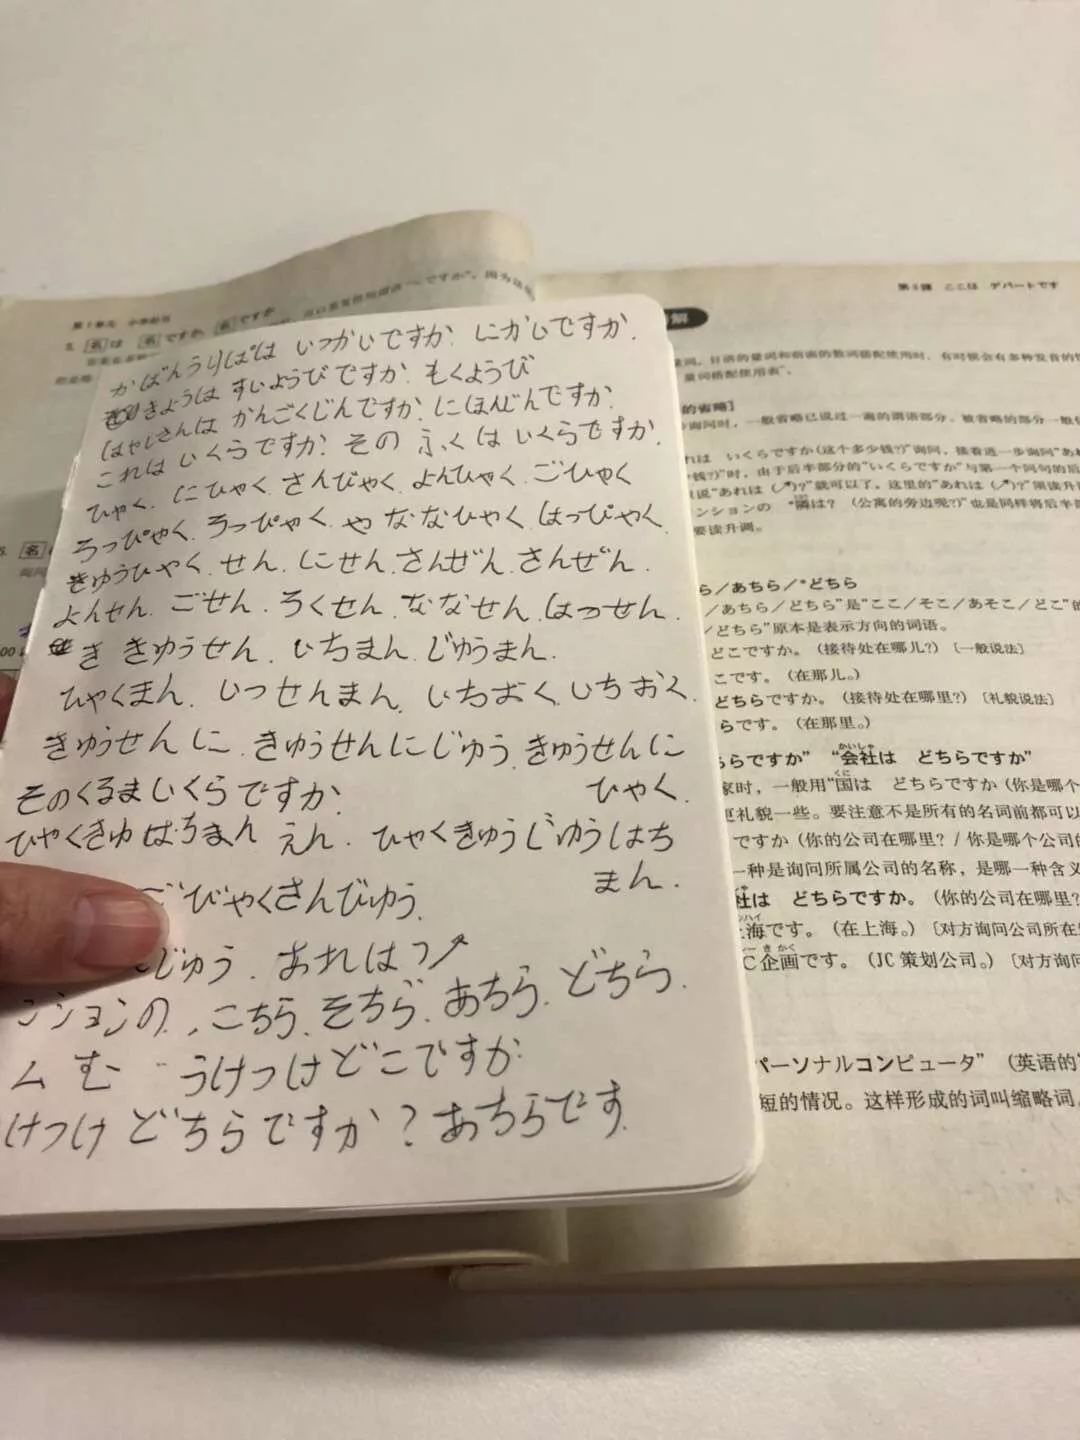 かばんうりばは いっかいですか. にかいですか.
きようは すいようびですか. もくようび
はやしさんは かんごくじんですか. にほんじんですか.
これは いくらですか. その ふくは いくらですか.
ひゃく. にひゃく. さんびゃく. よんひゃく. ごひゃく
ろっぴゃく. ろっぴゃく. や ななひゃく. はっぴゃく.
きゅうひゃく. せん. にせん. さんぜん. さんぜん.
よんせん. ごせん. ろくせん. ななせん. はっせん.
き きゅうせん. いちまん. じゅうまん.
ひゃくまん. いっせんまん. いちおく. いちおく.
きゅうせんに. きゅうせんにじゅう. きゅうせんに
ひゃく.
そのくるまいくらですか.
ひゃくきゅはちまん えん. ひゃくきゅうじゅうはち
まん.
ごびゃくさんびゅう.
じゅう. あれは ↗
ンションの. こちら. そちら. あちら. どちら.
ム む うけつけどこですか.
けつけ どちらですか? あちらです.
第1单元 小李赴日
名は 名ですか, 名ですか
第4課 ここは デパートです
解
量词搭配使用表”。
的省略]
询问时，一般省略已说过一遍的谓语部分。被省略的部分一般
れは いくらですか(这个多少钱?)”询问，接着进一步询问“あれ
钱?)”时，由于后半部分的“いくらですか”与第一个问句的后
说“あれは(↗)?”就可以了。这里的“あれは(↗)?”须读升
ンションの 隣は? (公寓的旁边呢?)”也是同样将后半部
要读升调。
ら/あちら/*どちら
/あちら/どちら”是“ここ/そこ/あそこ/どこ”的
/どちら”原本是表示方向的词语。
どこですか。(接待处在哪儿?)〔一般说法〕
こです。(在那儿。)
どちらですか。(接待处在哪里?)〔礼貌说法〕
らです。(在那里。)
ちらですか” “会社は どちらですか”
家时，一般用“国は どちらですか(你是哪个
更礼貌一些。要注意不是所有的名词前都可以
ですか(你的公司在哪里?/你是哪个公司的
一种是询问所属公司的名称，是哪一种含义
社は どちらですか。(你的公司在哪里?
上海です。(在上海。)〔对方询问公司所在
C企画です。(JC策划公司。)〔对方
パーソナルコンピュータ”(英语的
短的情况。这样形成的词叫缩略词，